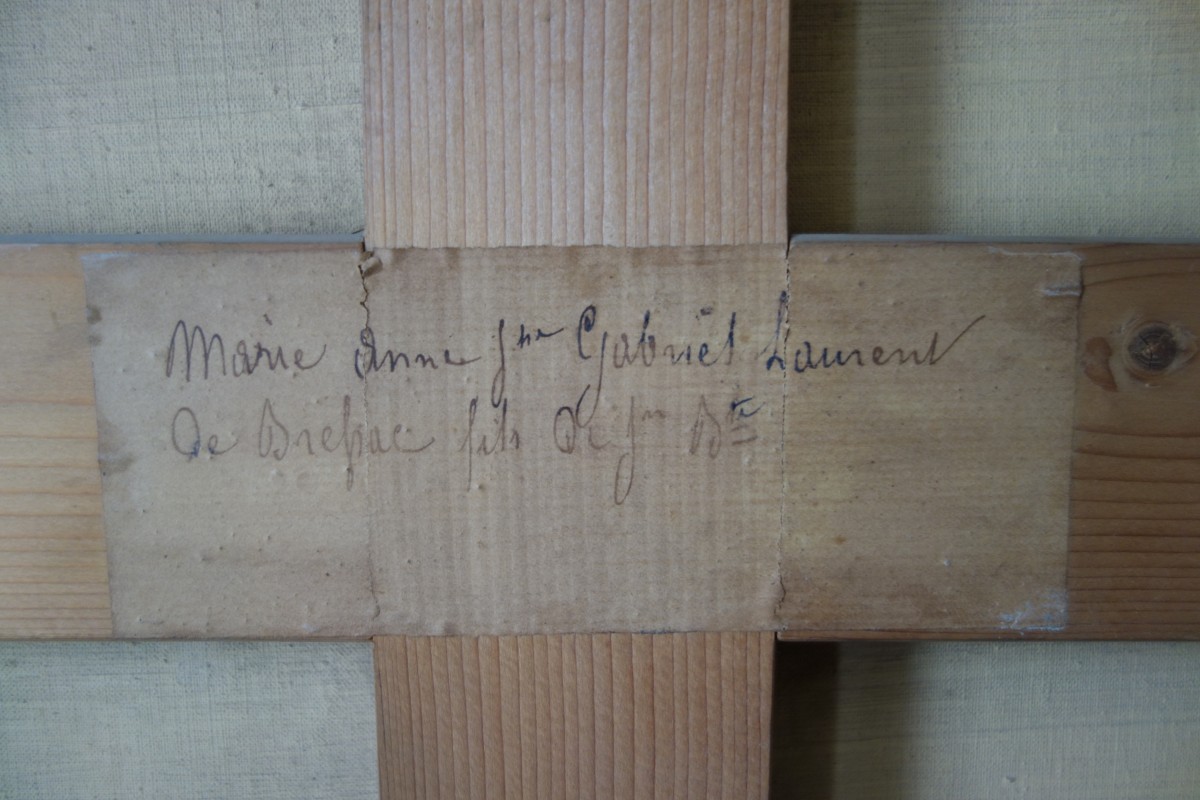 Marie anne Jne Gabriël Laurent
De Bressac fils de Jn Bte